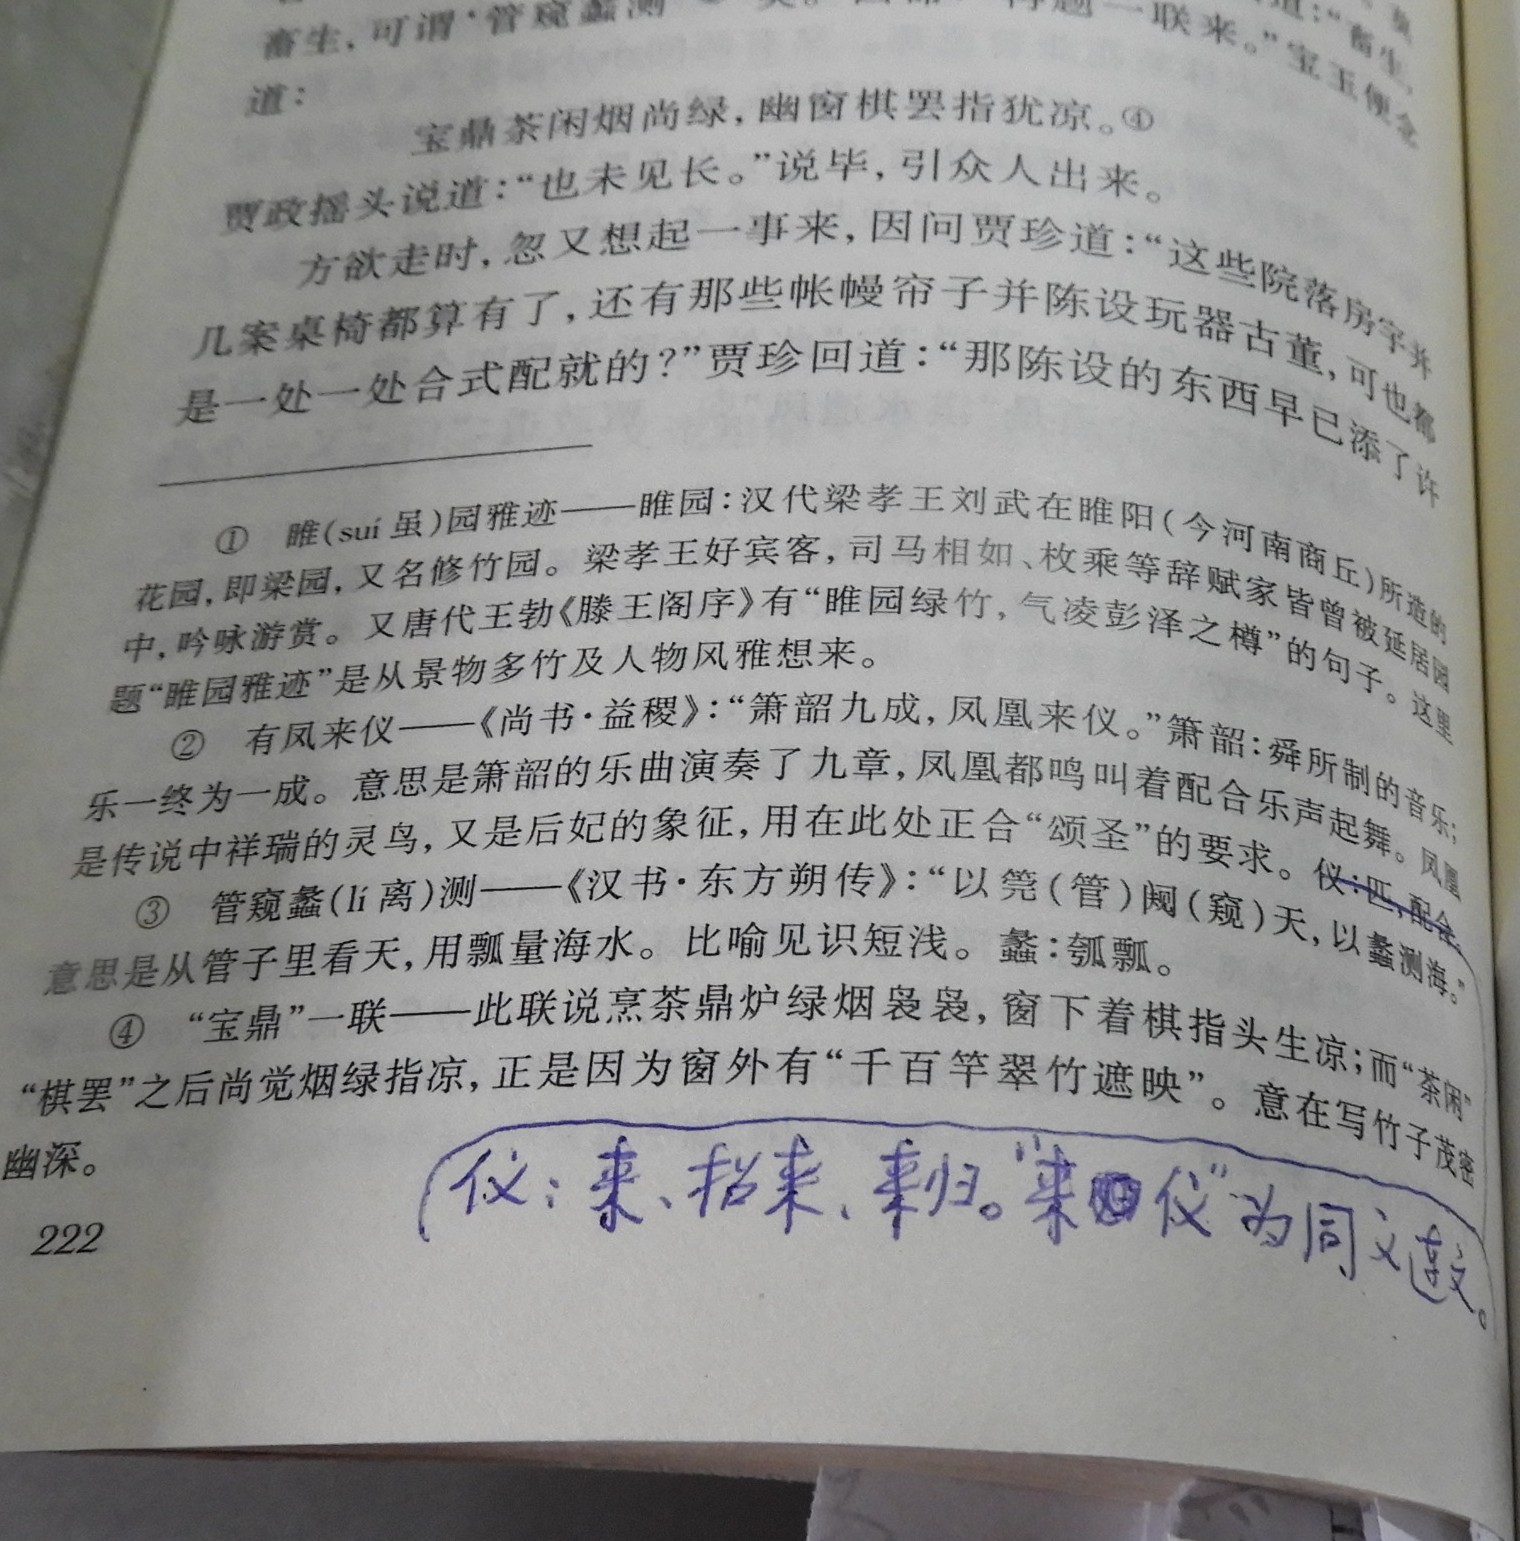 畜生，可谓‘管窥蠡测’③矣。”因命：“再题一联来。”宝玉便念
道：
宝鼎茶闲烟尚绿，幽窗棋罢指犹凉。④
贾政摇头说道：“也未见长。”说毕，引众人出来。
方欲走时，忽又想起一事来，因问贾珍道：“这些院落房宇并
几案桌椅都算有了，还有那些帐幔帘子并陈设玩器古董，可也都
是一处一处合式配就的？”贾珍回道：“那陈设的东西早已添了许
① 睢(suí 虽)园雅迹——睢园：汉代梁孝王刘武在睢阳(今河南商丘)所造的
花园，即梁园，又名修竹园。梁孝王好宾客，司马相如、枚乘等辞赋家皆曾被延居园
中，吟咏游赏。又唐代王勃《滕王阁序》有“睢园绿竹，气凌彭泽之樽”的句子。这里
题“睢园雅迹”是从景物多竹及人物风雅想来。
② 有凤来仪——《尚书·益稷》：“箫韶九成，凤凰来仪。”箫韶：舜所制的音乐；
乐一终为一成。意思是箫韶的乐曲演奏了九章，凤凰都鸣叫着配合乐声起舞。凤凰
是传说中祥瑞的灵鸟，又是后妃的象征，用在此处正合“颂圣”的要求。仪：匹，配合。
③ 管窥蠡(lí 离)测——《汉书·东方朔传》：“以筦(管)阚(窥)天，以蠡测海。”
意思是从管子里看天，用瓢量海水。比喻见识短浅。蠡：瓠瓢。
④ “宝鼎”一联——此联说烹茶鼎炉绿烟袅袅，窗下着棋指头生凉；而“茶闲”
“棋罢”之后尚觉烟绿指凉，正是因为窗外有“千百竿翠竹遮映”。意在写竹子茂密
幽深。
仪：来、招来、来归。“来仪”为同义连文。
222